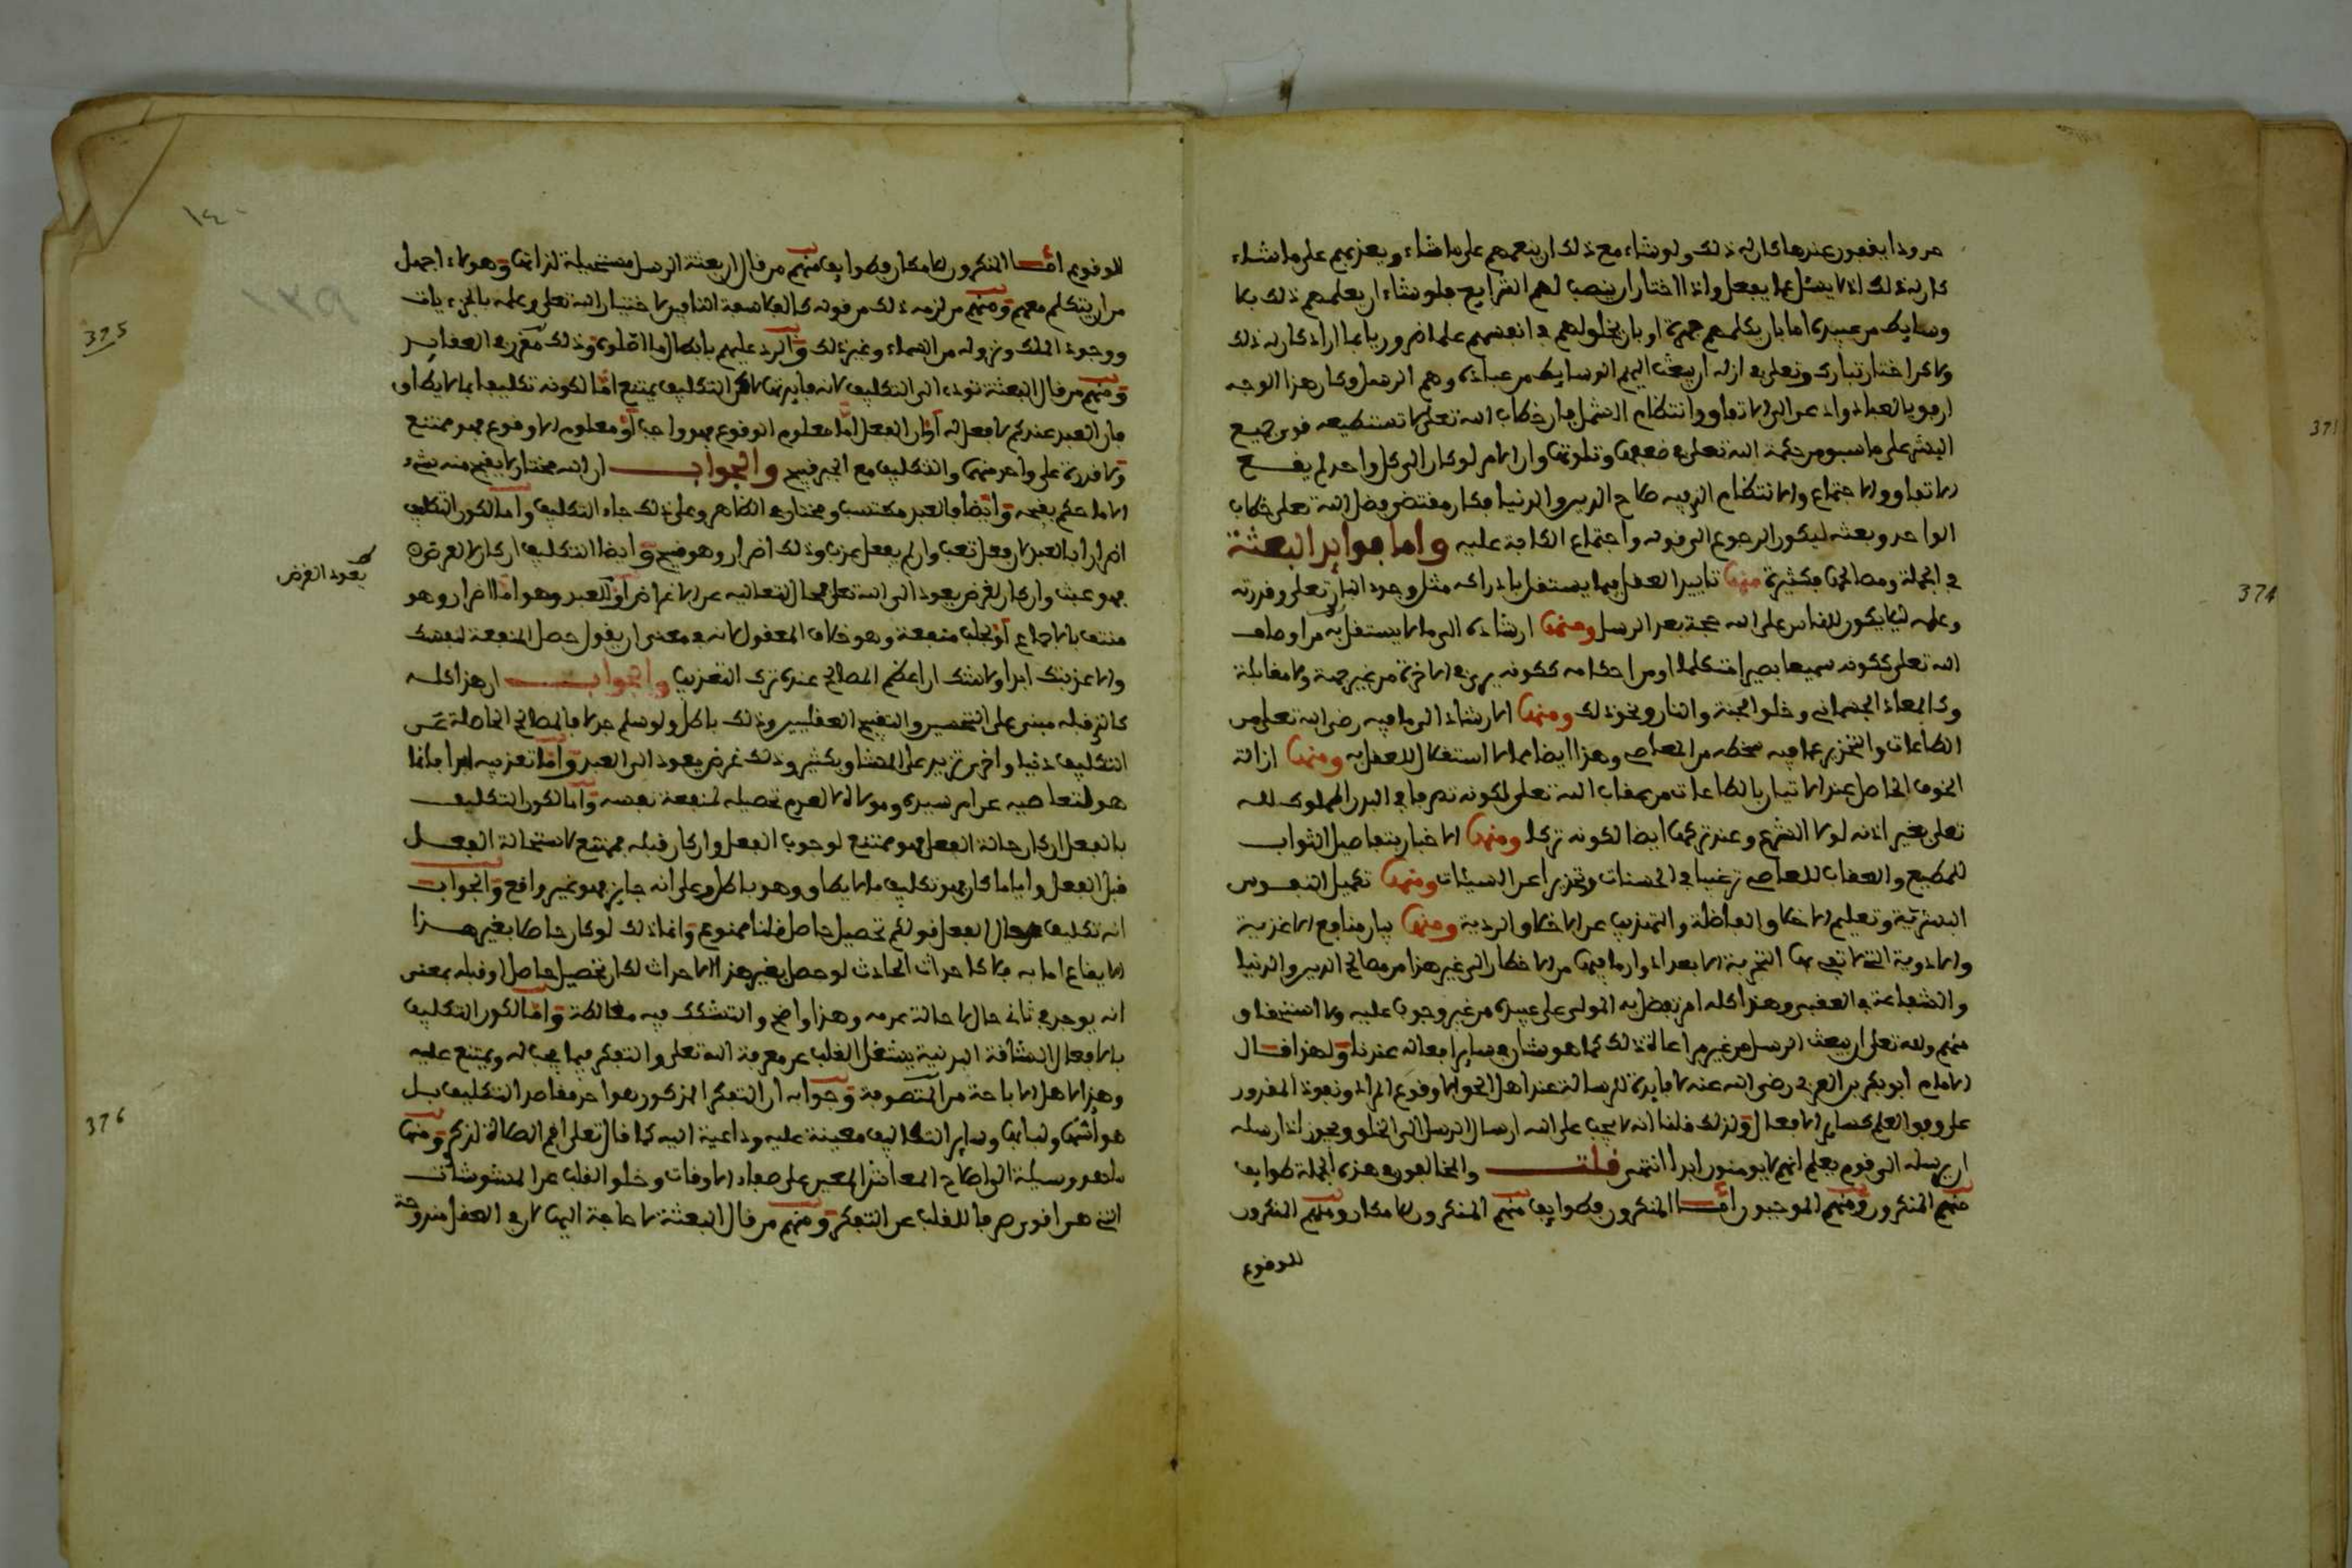 حدودا يقفون عندها كان له ذلك ولو شاء مع ذلك ان ينعمهم على ما شاء ويعذبهم على ما شاء
كان له ذلك اذ لا يسئل عما يفعل واذا اختار ان ينصب لهم الشرايع فلو شاء ان يعلمهم ذلك بلا
وسايط من عبيده اما بان يكلمهم جهرة او بان يخلق لهم في انفسهم علما ضروريا بما اراد كان له ذلك
ولاكن اختار تبارك وتعلى في ازله ان يبعث اليهم الوسايط من عباده وهم الرسل وكان هذا الوجه
ارفق بالعباد وادعى الى الاتفاق وانتظام الشمل فان خطاب الله تعلى لا تستطيعه قوى جميع
البشر على ما سبق من حكمة الله تعلى في ضعفها وتلوثها وان الامر لو كان الى كل واحد لم يقع
الاتفاق والاجتماع والانتظام الذي فيه صلاح الدين والدنيا فكان مقتضى فضل الله تعلى خطاب
الواحد وبعثه ليكون الرجوع الى قوله واجتماع الكافة عليه واما فوايد البعثة
في الجملة ومصالحها فكثيرة منها تاييد العقل فيما يستقل بادراكه مثل وجود البارى تعلى وقدرته
وعلمه ليلا يكون للناس على الله حجة بعد الرسل ومنها ارشاده الى ما لا يستقل به من اوصاف
الله تعلى ككونه سميعا بصيرا متكلما او من احكامه ككونه يرى في الاخرة من غير جهة ولا مقابلة
وكالمعاد الجسماني وخلق الجنة والنار ونحو ذلك ومنها الارشاد الى ما فيه رضى الله تعلى من
الطاعات والتحذير عما فيه سخطه من المعاصي وهذا ايضا مما لا استقلال للعقل به ومنها ازالة
الخوف الحاصل عند الاتيان بالطاعات من عقاب الله تعلى لكونه تصرفا في البدن المملوك لله
تعلى بغير اذنه لولا الشرع وعند تركها ايضا لكونه تركا ومنها الاخبار بتفاصيل الثواب
للمطيع والعقاب للعاصي ترغيبا في الحسنات وتحذيرا عن السيئات ومنها تكميل النفوس
البشرية وتعليم الاخلاق الفاضلة والتهذيب عن الاخلاق الردية ومنها بيان منافع الاغذية
والادوية التي لا تفي بها التجربة الا بعد ادوار مع ما فيها من الاخطار الى غير هذا من مصالح الدين والدنيا
والشفاعة في العقبى وهذا كله امر تفضل به المولى على عبيده من غير وجوب عليه ولا استحقاق
منهم وله تعلى ان يبعث الرسل من غير مراعاة ذلك كما هو شان ساير افعاله عندنا ولهذا قال
الامام ابو بكر بن العربي رضي الله عنه لا فايدة للرسالة عند اهل الحق الا وقوع المراد ونفوذ المقدور
على وفق العلم كساير الافعال ولذلك قلنا انه لا يجب على الله ارسال الرسل الى الخلق ويجوز اذا ارسله
ان يرسله الى قوم يعلم انهم لا يومنون ابدا انتهى قلت والمخالفون في هذه الجملة طوايف
منهم المنكرون ومنهم الموجبون اما المنكرون فطوايف منهم المنكرون للامكان ومنهم المنكرون
للوقوع
للوقوع اما المنكرون للامكان فطوايف منهم من قال ان بعثة الرسل مستحيلة لذاتها وهولاء اجهل
من ان يتكلم معهم ومنهم من لزمه ذلك من قوله كالفلاسفة النافين لاختيار الله تعلى وعلمه بالجزءيات
ووجود الملك ونزوله من السماء وغير ذلك والرد عليهم بابطال ما اصلوه وذلك مقرر في العقايد
ومنهم من قال البعثة تودى الى التكليف لانه فايدتها لاكن التكليف يمتنع اما لكونه تكليفا بما لا يطاق
فان العبد عندكم لا فعل له او ان الفعل اما معلوم الوقوع فهو واجب او معلوم اللاوقوع فهو ممتنع
ولا قدرة على واحد منهما والتكليف مع الجبر قبيح والجواب ان الله مختار لا يقبح منه شيء
الا ما حكم بقبحه وايضا فالعبد مكتسب ومختار في الظاهر وعلى ذلك جاء التكليف واما لكون التكليف
اضرارا بالعبد ان فعل تعب وان لم يفعل عذب وذلك اضرار وهو قبيح وايضا التكليف ان كان لا لغرض
فهو عبث وان كان لغرض يعود الى الله تعلى فمحال لتعاليه عن الاغراض او الى العبد وهو اما اضرار وهو
يعود الغرض
منتف بالاجماع او لجلب منفعة وهو خلاف المعقول لانه في معنى ان يقول حصل المنفعة لنفسك
والا عذبتك ابدا ولا شك ان اعظم المصالح عنده ترك التعذيب والجواب ان هذا كله
كالذي قبله مبنى على التحسين والتقبيح العقليين وذلك باطل ولو سلم جدلا فالمصالح الحاصلة عن
التكليف دنيا واخرى تزيد على المشاق بكثير وذلك غرض يعود الى العبد واما تعذيبه ابدا فانما
هو لتعاصيه عن امر سيده ومولاه لا لعدم تحصيله لمنفعة نفسه واما لكون التكليف
بالفعل ان كان حالة الفعل فهو ممتنع لوجوب الفعل وان كان قبله فممتنع لاستحالة الفعل
قبل الفعل واياما كان فهو تكليف ما لا يطاق وهو باطل وعلى انه جايز فهو غير واقع والجواب
انه تكليف حال الفعل قولكم تحصيل حاصل قلنا ممنوع وانما ذلك لو كان حاصلا بغير هذا
الايقاع اما به فلا كاحداث الحادث لو حصل بغير هذا الاحداث لكان تحصيل حاصل او قبله بمعنى
انه يوجد في ثاني حال لا حالة عدمه وهذا واضح والتشكك فيه مغالطة واما لكون التكليف
بالافعال الشاقة البدنية يشغل القلب عن معرفة الله تعلى والتفكر فيما يجب له ويمتنع عليه
وهذا لاهل الاباحة من المتصوفة وجوابه ان التفكر المذكور هو احد مقاصد التكليف بل
هو اشها ولبابها وساير التكاليف معينة عليه وداعية اليه كما قال تعلى اقم الصلاة لذكري ومنها
ما هو وسيلة الى اصلاح المعاش المعين على صفاء الاوقات وخلو القلب عن المشوشات
التي هي اقوى صرفا للقلب عن التفكر ومنهم من قال البعثة لا حاجة اليها لان في العقل مندوحة
١٤٠
375
376
371
374